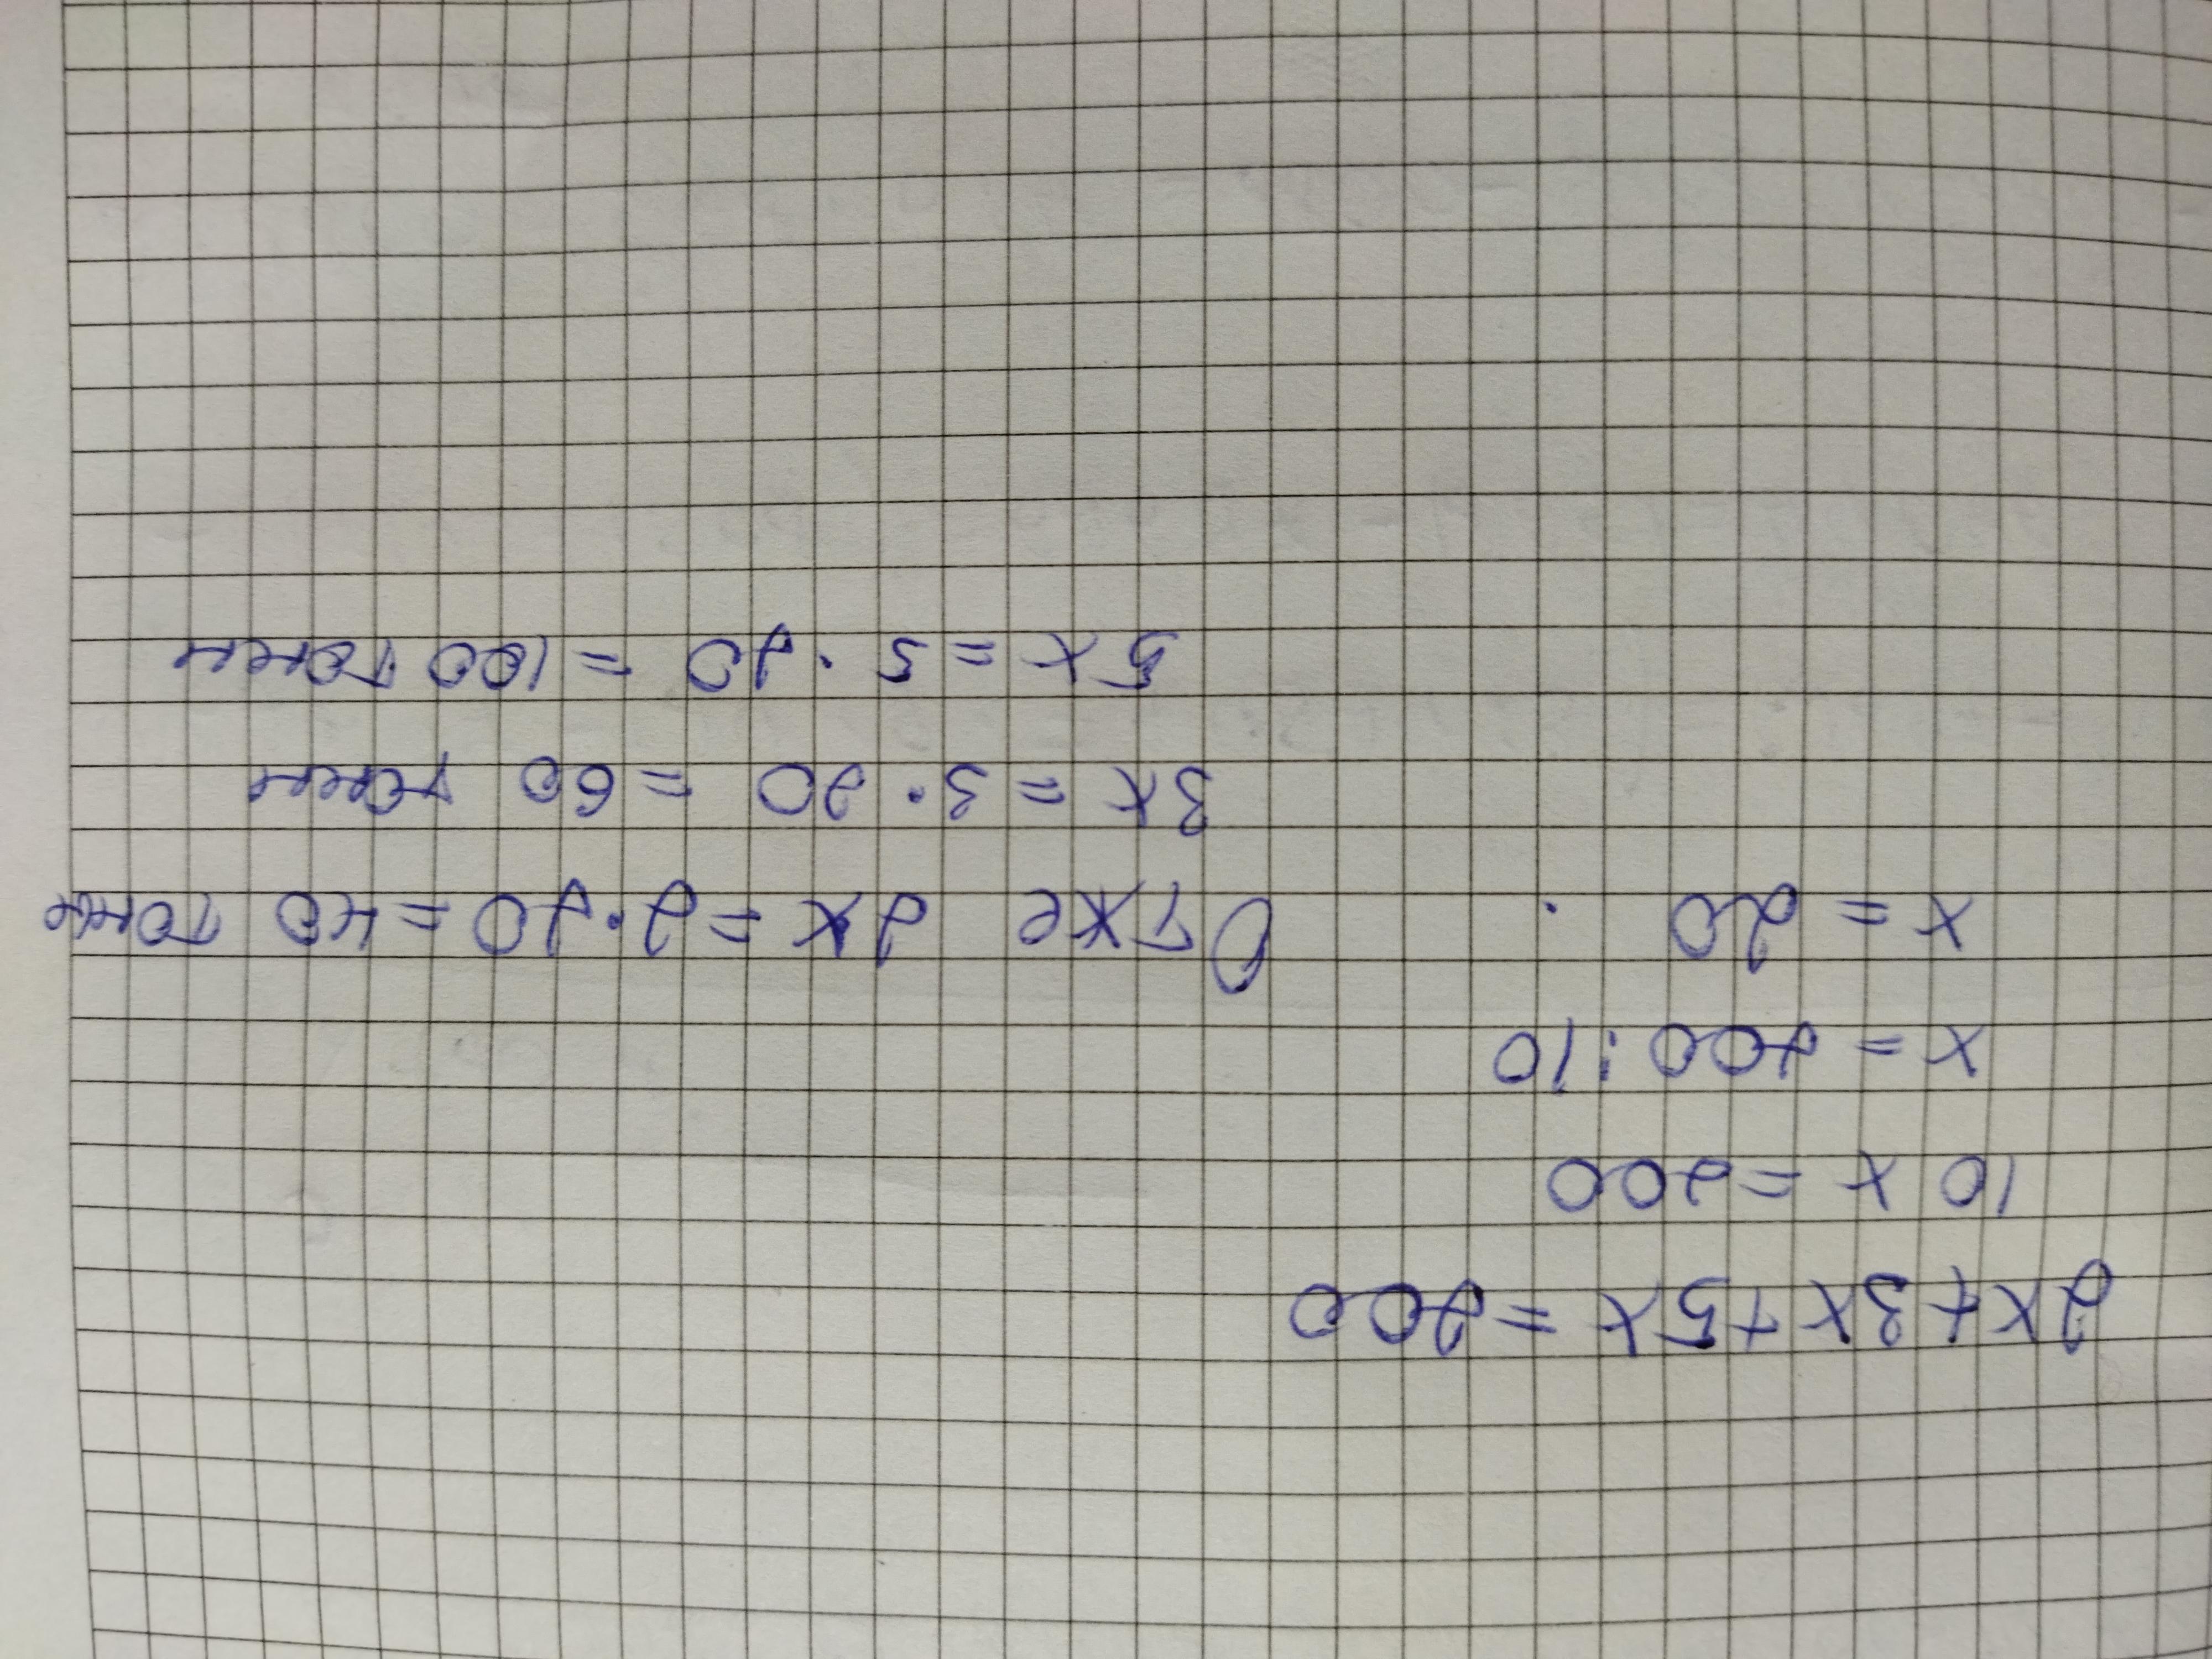 2x+3x+5x=200
10x=200
x=200:10
x=20
2x=2·20=40 тонн
3x=3·20=60 тонн
5x=5·20=100 тонн